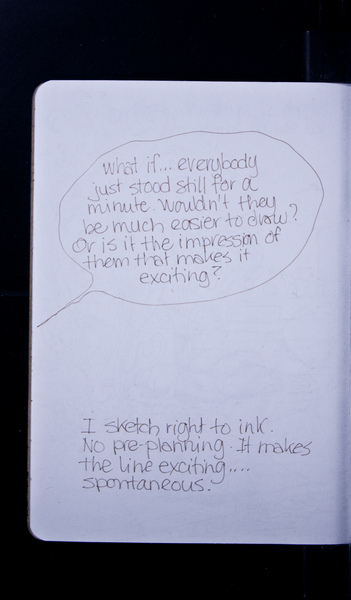 what if... everybody
just stood still for a
minute. Wouldn't they
be much easier to draw?
Or is it the impression of
them that makes it
exciting?
I sketch right to ink.
No pre-planning. It makes
the line exciting....
spontaneous.